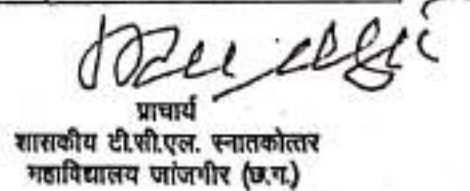 प्राचार्य
शासकीय टी.सी.एल. स्नातकोत्तर
महाविद्यालय जांजगीर (छ.ग.)